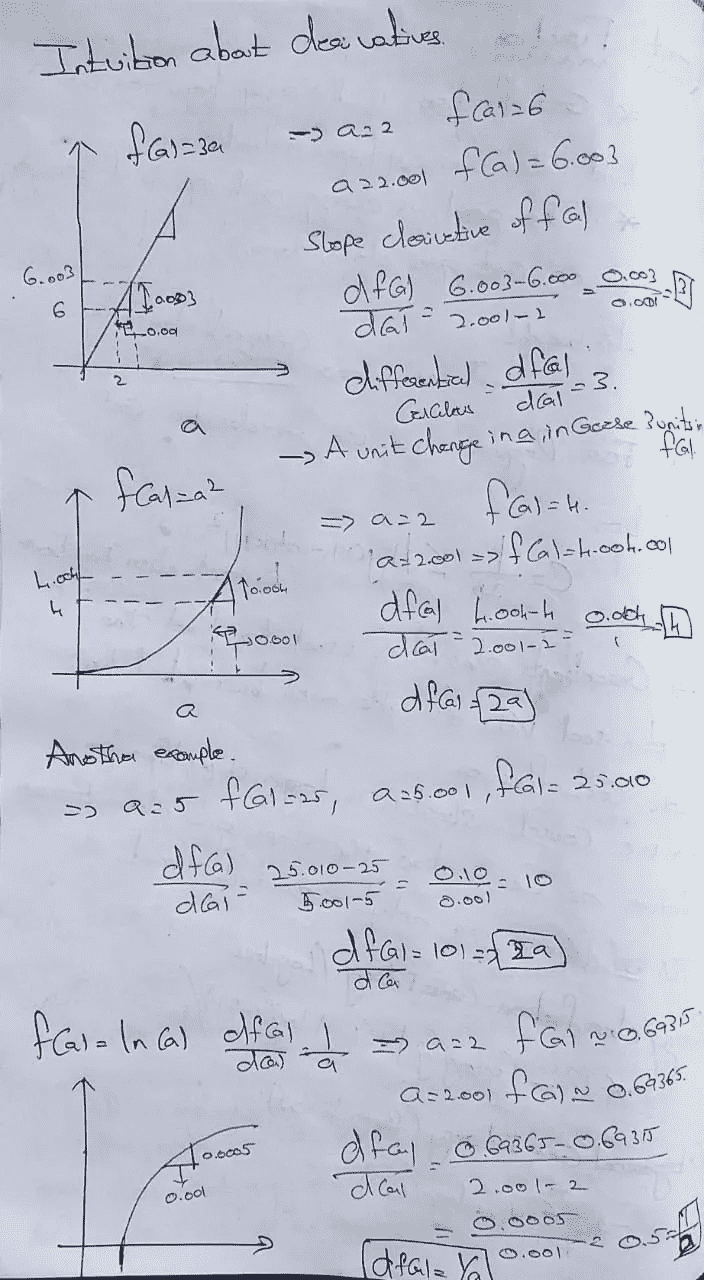 Intuition about derivatives.
f(a)=3a
=> a=2 f(a)=6
a=2.001 f(a)=6.003
Slope derivative of f(a)
6.003
6
0.003
0.001
2
a
df(a)/d(a) = 6.003-6.000/2.001-2 = 0.003/0.001 = 3
differential Calculus = df(a)/d(a) = 3.
-> A unit change in a, increase 3 units in f(a).
f(a)=a²
=> a=2 f(a)=4.
a=2.001 => f(a)=4.004.001
4.004
4
0.004
0.001
a
df(a)/d(a) = 4.004-4/2.001-2 = 0.004/ = 4
df(a) = 2a
Another example.
=> a=5 f(a)=25, a=5.001, f(a)=25.010
df(a)/d(a) = 25.010-25/5.001-5 = 0.10/0.001 = 10
df(a)/d(a) = 10 => 2a
f(a)=ln(a) df(a)/d(a) = 1/a => a=2 f(a)≈0.69315
a=2.001 f(a)≈0.69365.
0.0005
0.001
df(a)/d(a) = 0.69365-0.69315/2.001-2
= 0.0005/0.001 = 0.5 = 1/a
df(a)= 1/a